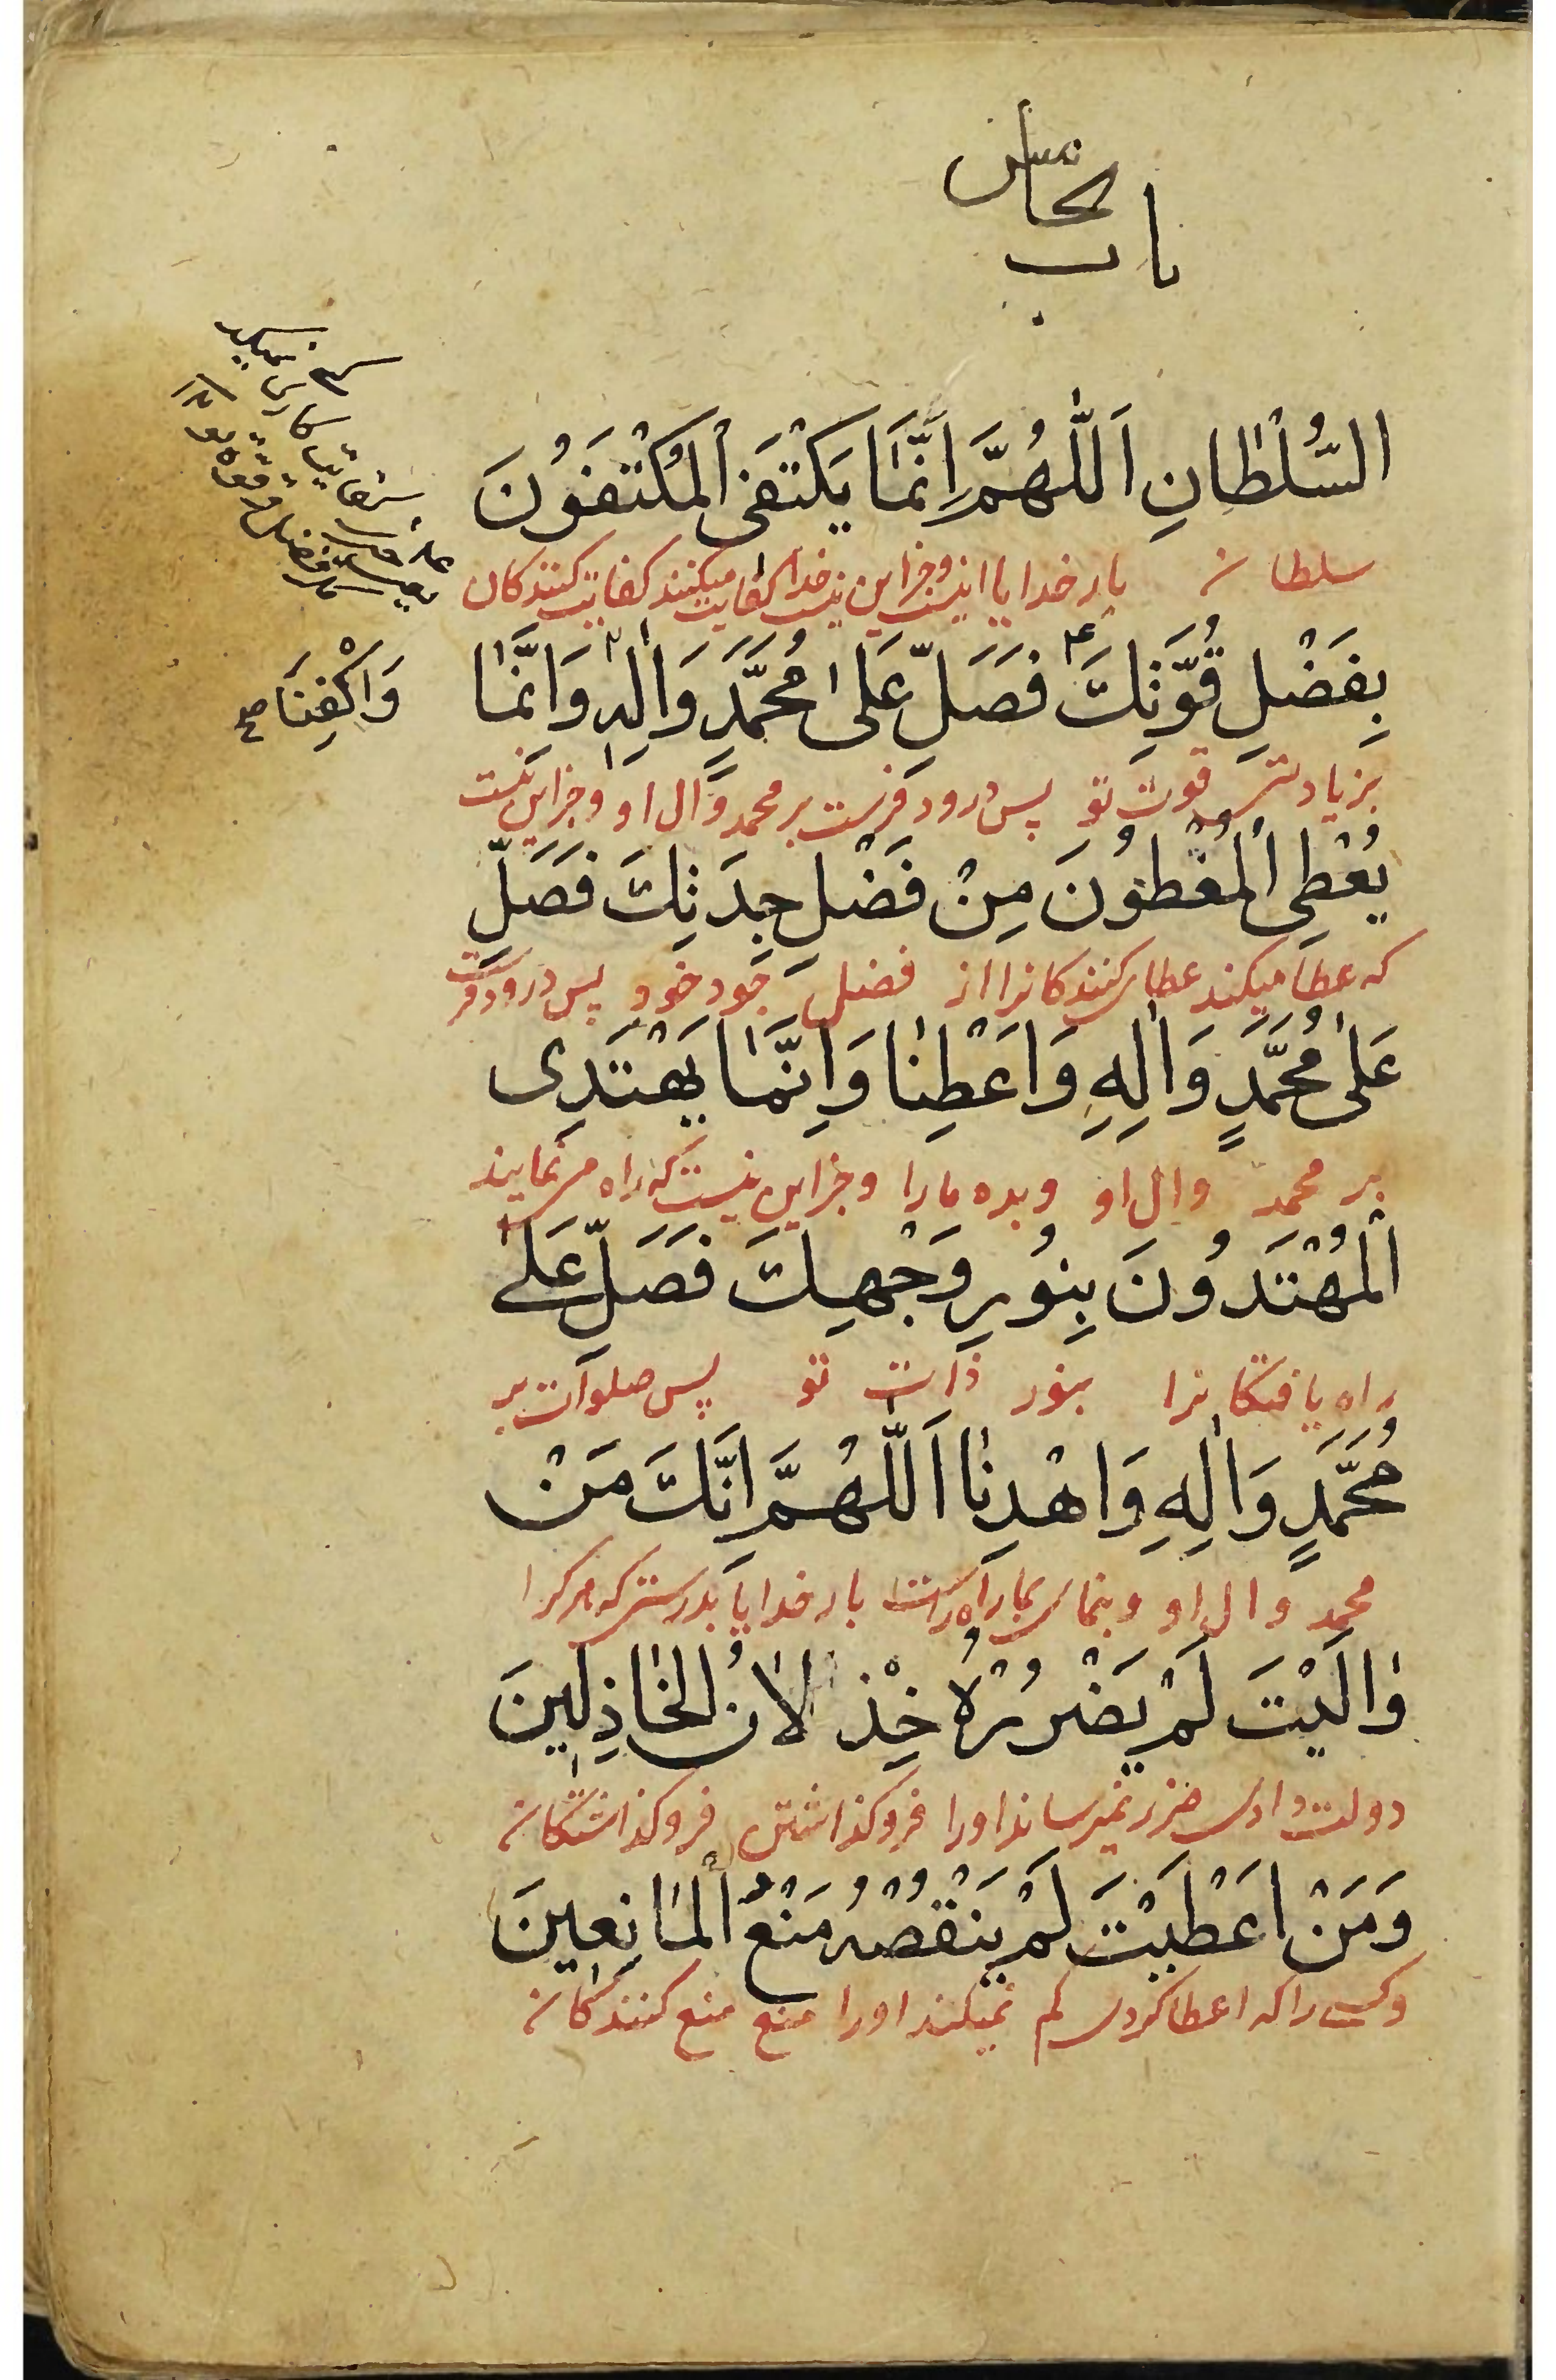 باب
الخامس
السُّلْطَانِ اَللّٰهُمَّ اِنَّمَا يَكْتَفِى الْمُكْتَفُونَ
سلطان بار خدایا اینست و جز این نیست خدا کفایت میکنند کفایت کنندکان
بِفَضْلِ قُوَّتِكَ فَصَلِّ عَلىٰ مُحَمَّدٍ وَاٰلِهِ وَانَّمَا
وَاكْفِنَا صح
بزیادتی قوت تو پس درود فرست بر محمد وآل او و جز این نیست
يُعْطِى الْمُعْطُونَ مِنْ فَضْلِ جِدَتِكَ فَصَلِّ
که عطا میکند عطای کنندکانرا از فضل جود خود پس درود فرست
عَلىٰ مُحَمَّدٍ وَاٰلِهِ وَاَعْطِنٰا وَاِنَّمٰا يَهْتَدِى
بر محمد وال او وبده مارا وجز این نیست که راه می نمایند
الْمُهْتَدُونَ بِنُورِ وَجْهِكَ فَصَلِّ عَلے
راه یافتکانرا بنور ذات تو پس صلوات بر
مُحَمَّدٍ وَاٰلِهِ وَاهْدِنٰا اَللّٰهُمَّ اِنَّكَ مَنْ
محمد وال او وبنمای بما راه راست بار خدایا بدرستی که هر کرا
وٰالَيْتَ لَمْ يَضْرُرْهُ خِذْلاٰنُ الْخٰاذِلِينَ
دولت دادی ضرر نمیرساند اورا فروکذاشتن فروکذاشتکان
وَمَنْ اَعْطَيْتَ لَمْ يَنْقُصْهُ مَنْعُ الْمٰانِعِينَ
وکسے را که اعطا کردی کم نمیکند اورا منع منع کنندکان